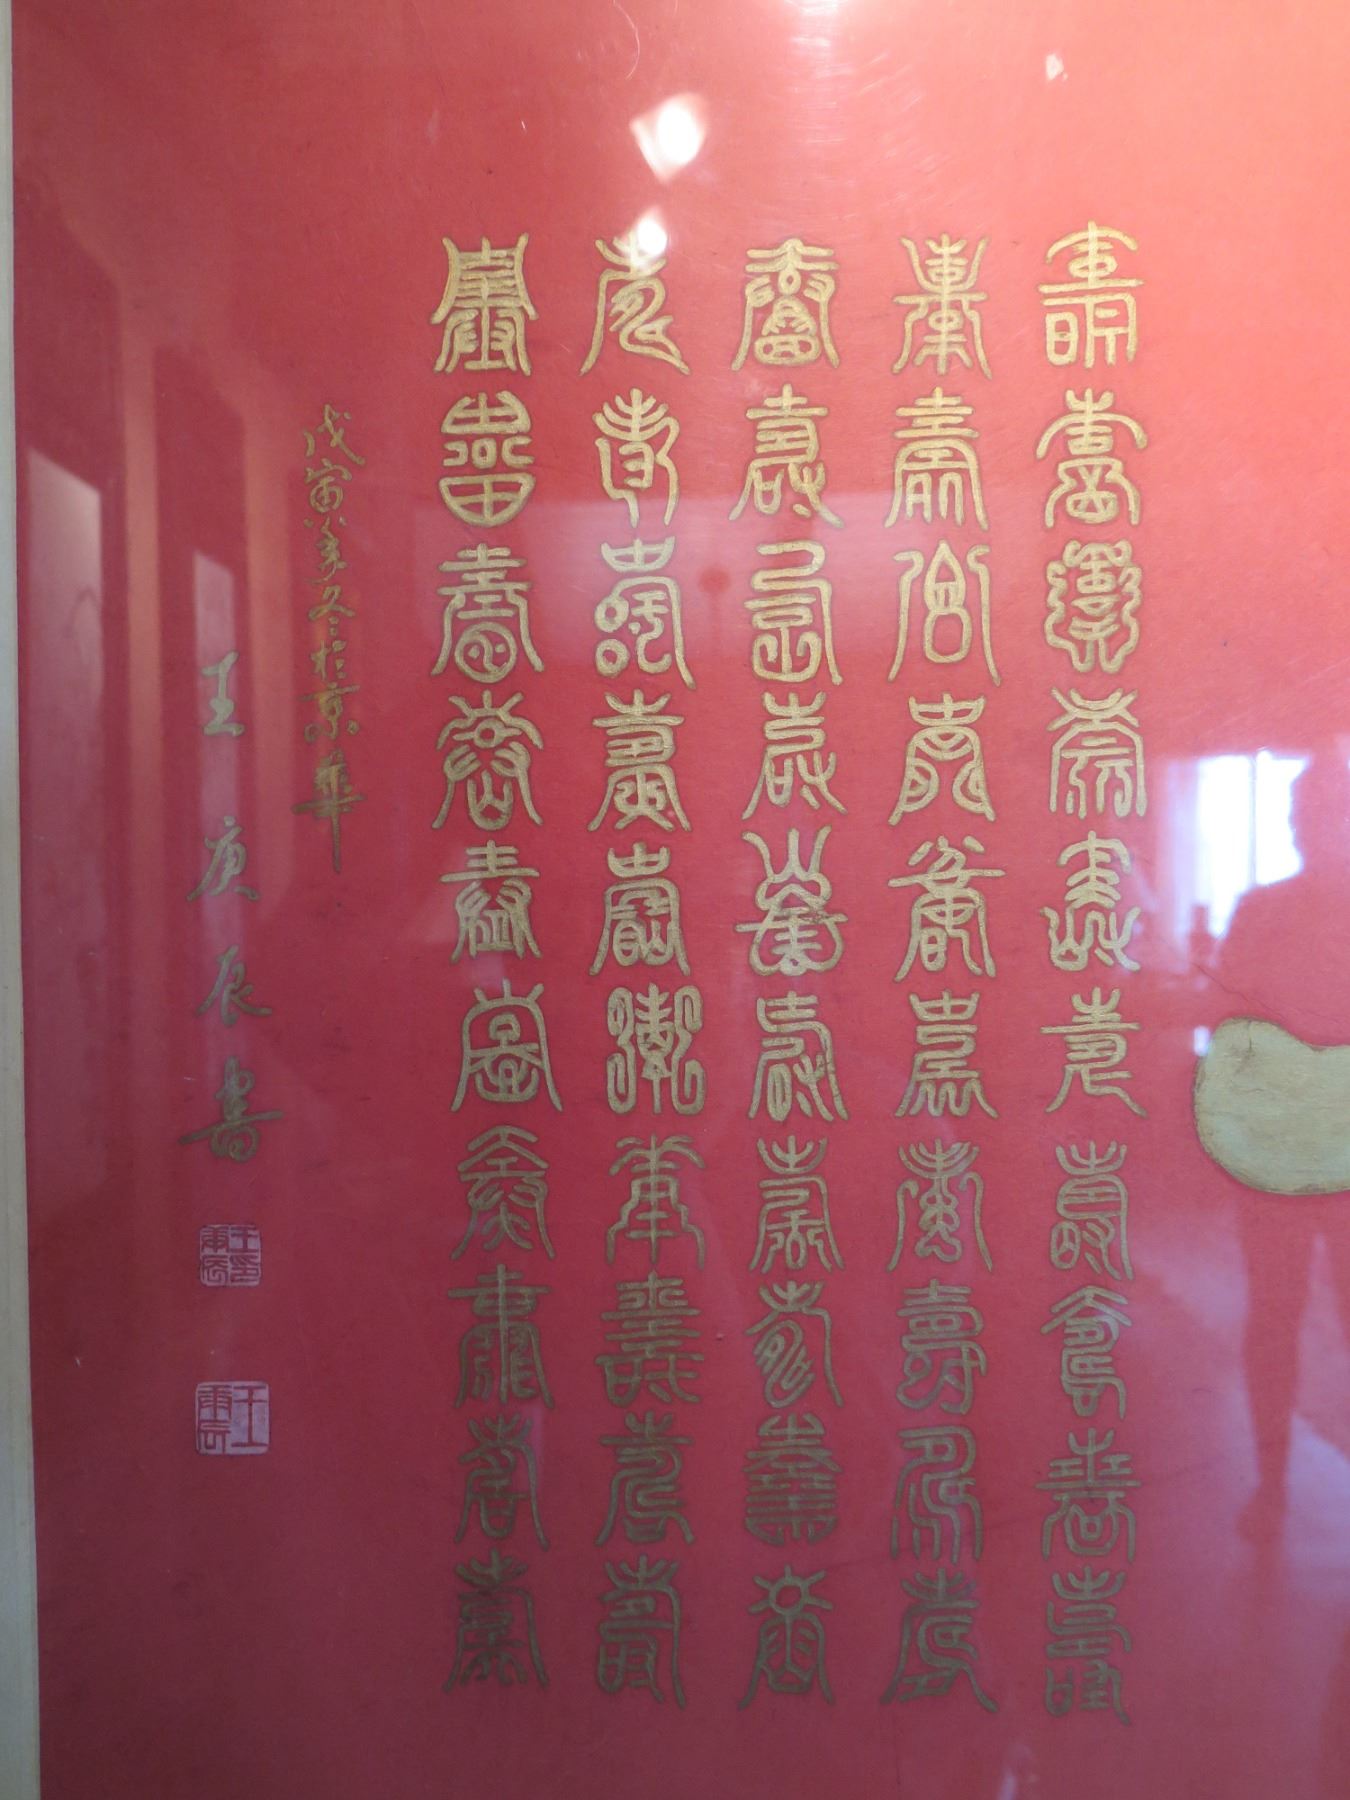 壽壽壽壽壽壽壽壽壽壽
壽壽壽壽壽壽壽壽壽壽
壽壽壽壽壽壽壽壽壽壽
壽壽壽壽壽壽壽壽壽壽
壽壽壽壽壽壽壽壽壽壽
戊寅年冬於京華
王庚辰書
王印庚辰
王庚辰